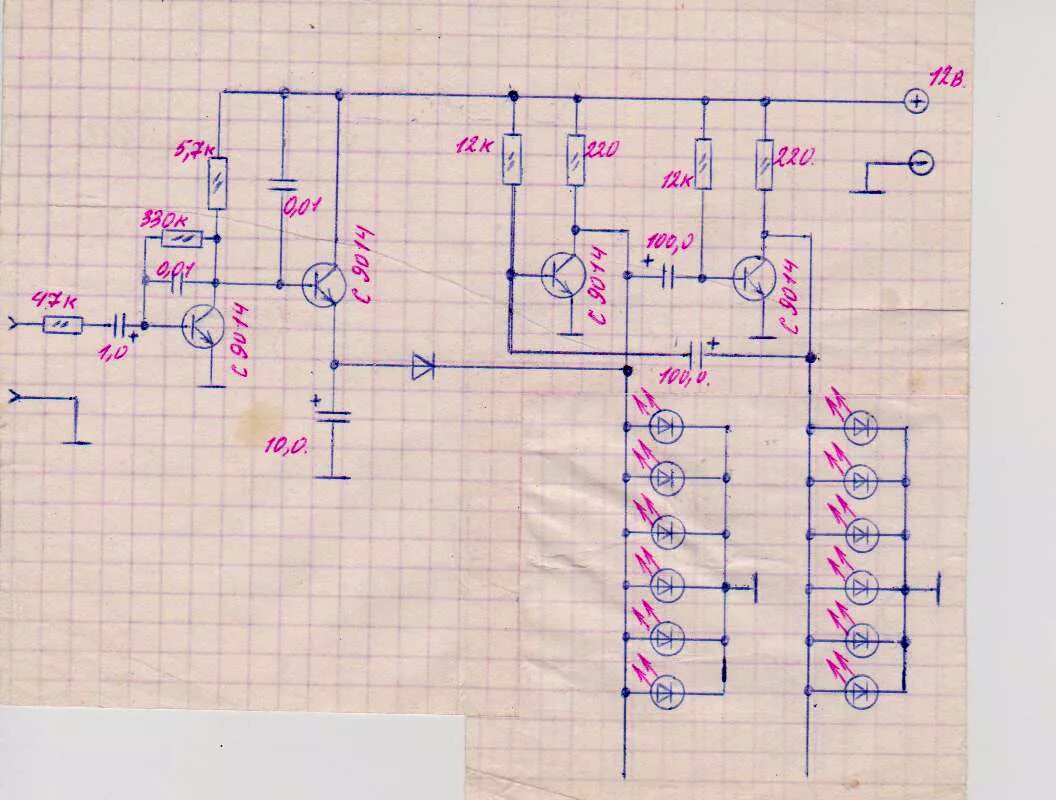 12в.
5,7к
12к
220
12к
220.
0,01
330к
100,0
C 9014
0,01
C 9014
C 9014
47к
C 9014
1,0
+
+
+
100,0.
+
10,0.